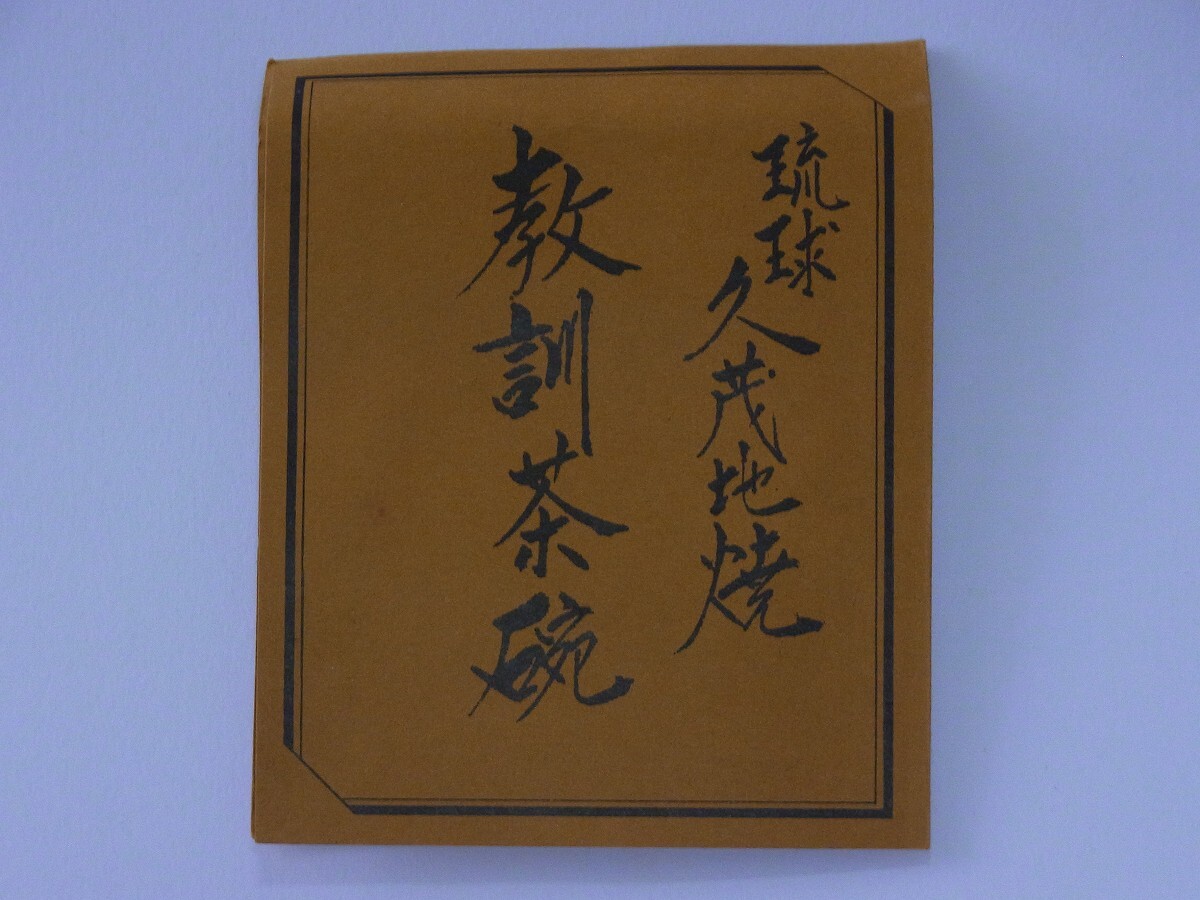 琉球久茂地焼
教訓茶碗